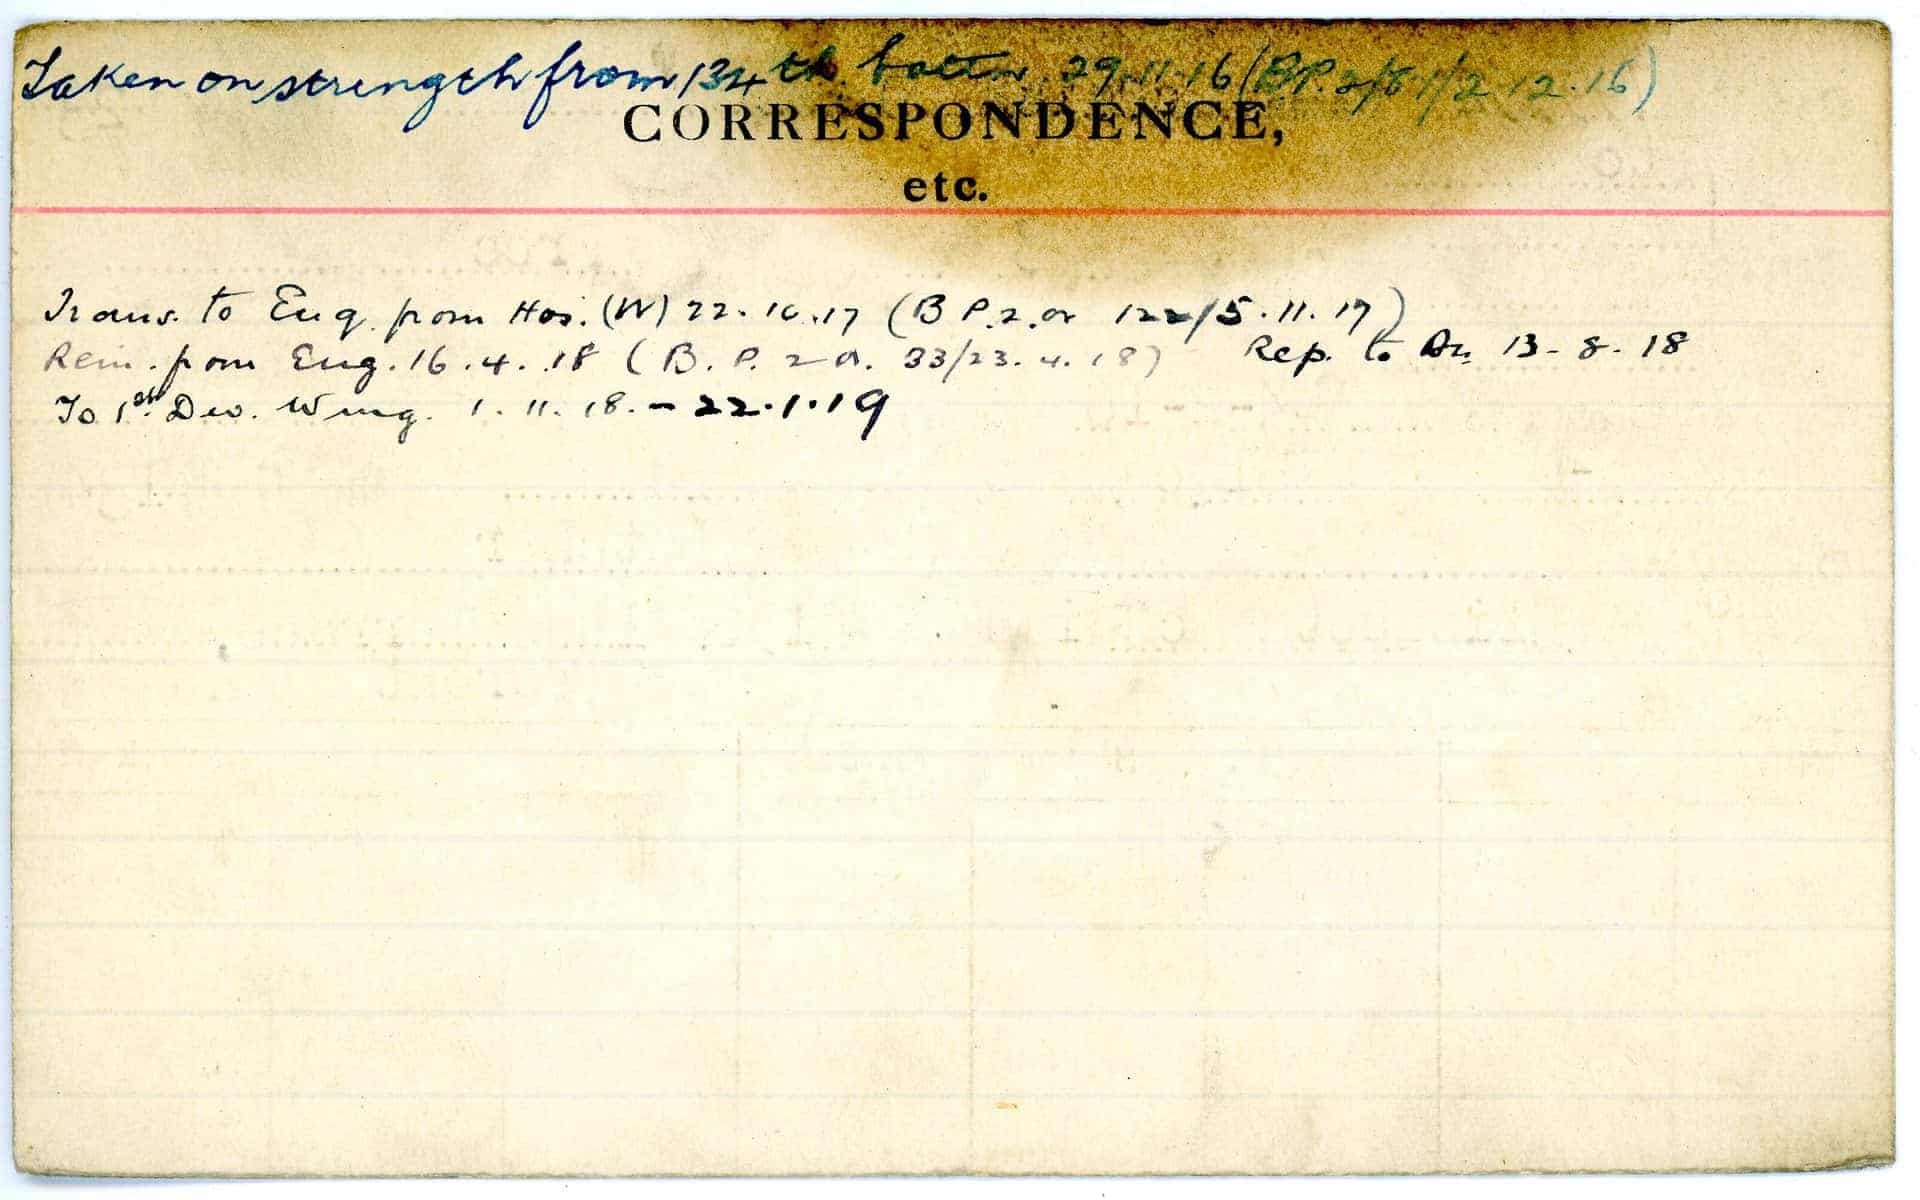 Taken on strength from 134th. battn 29.11.16 (B.P. 2/0.1/2.12.16)
CORRESPONDENCE,
etc.
Trans. to Eng. from Hos. (W) 22.10.17 (B P.2.or 122/5.11.17)
Rein. from Eng. 16.4.18 (B. P. 2 or. 33/23.4.18) Rep. to Bn. 13-8-18
To 1st. Div. Wing. 1.11.18. - 22.1.19